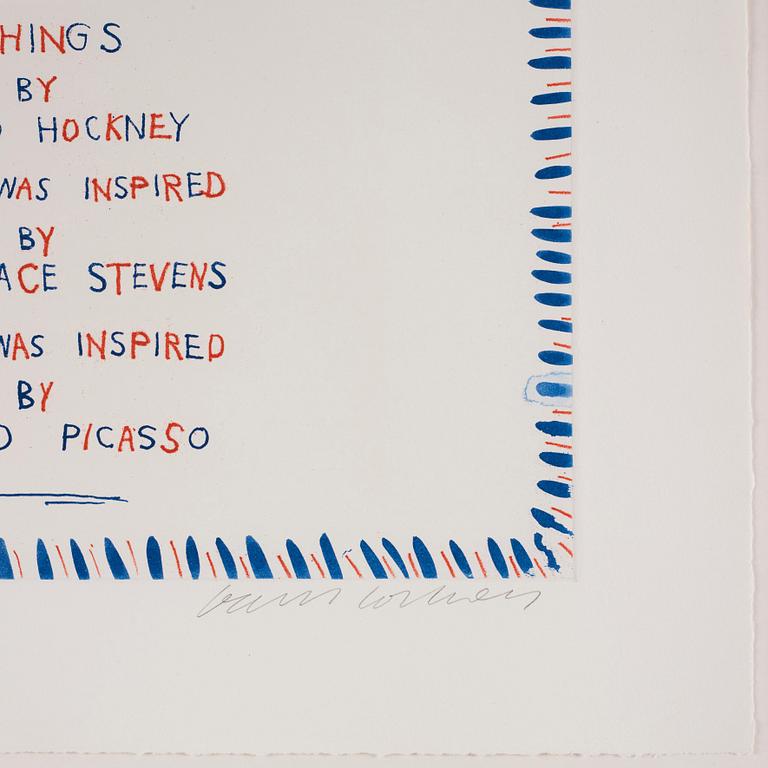 HINGS
BY
HOCKNEY
WAS INSPIRED
BY
ACE STEVENS
WAS INSPIRED
BY
PICASSO